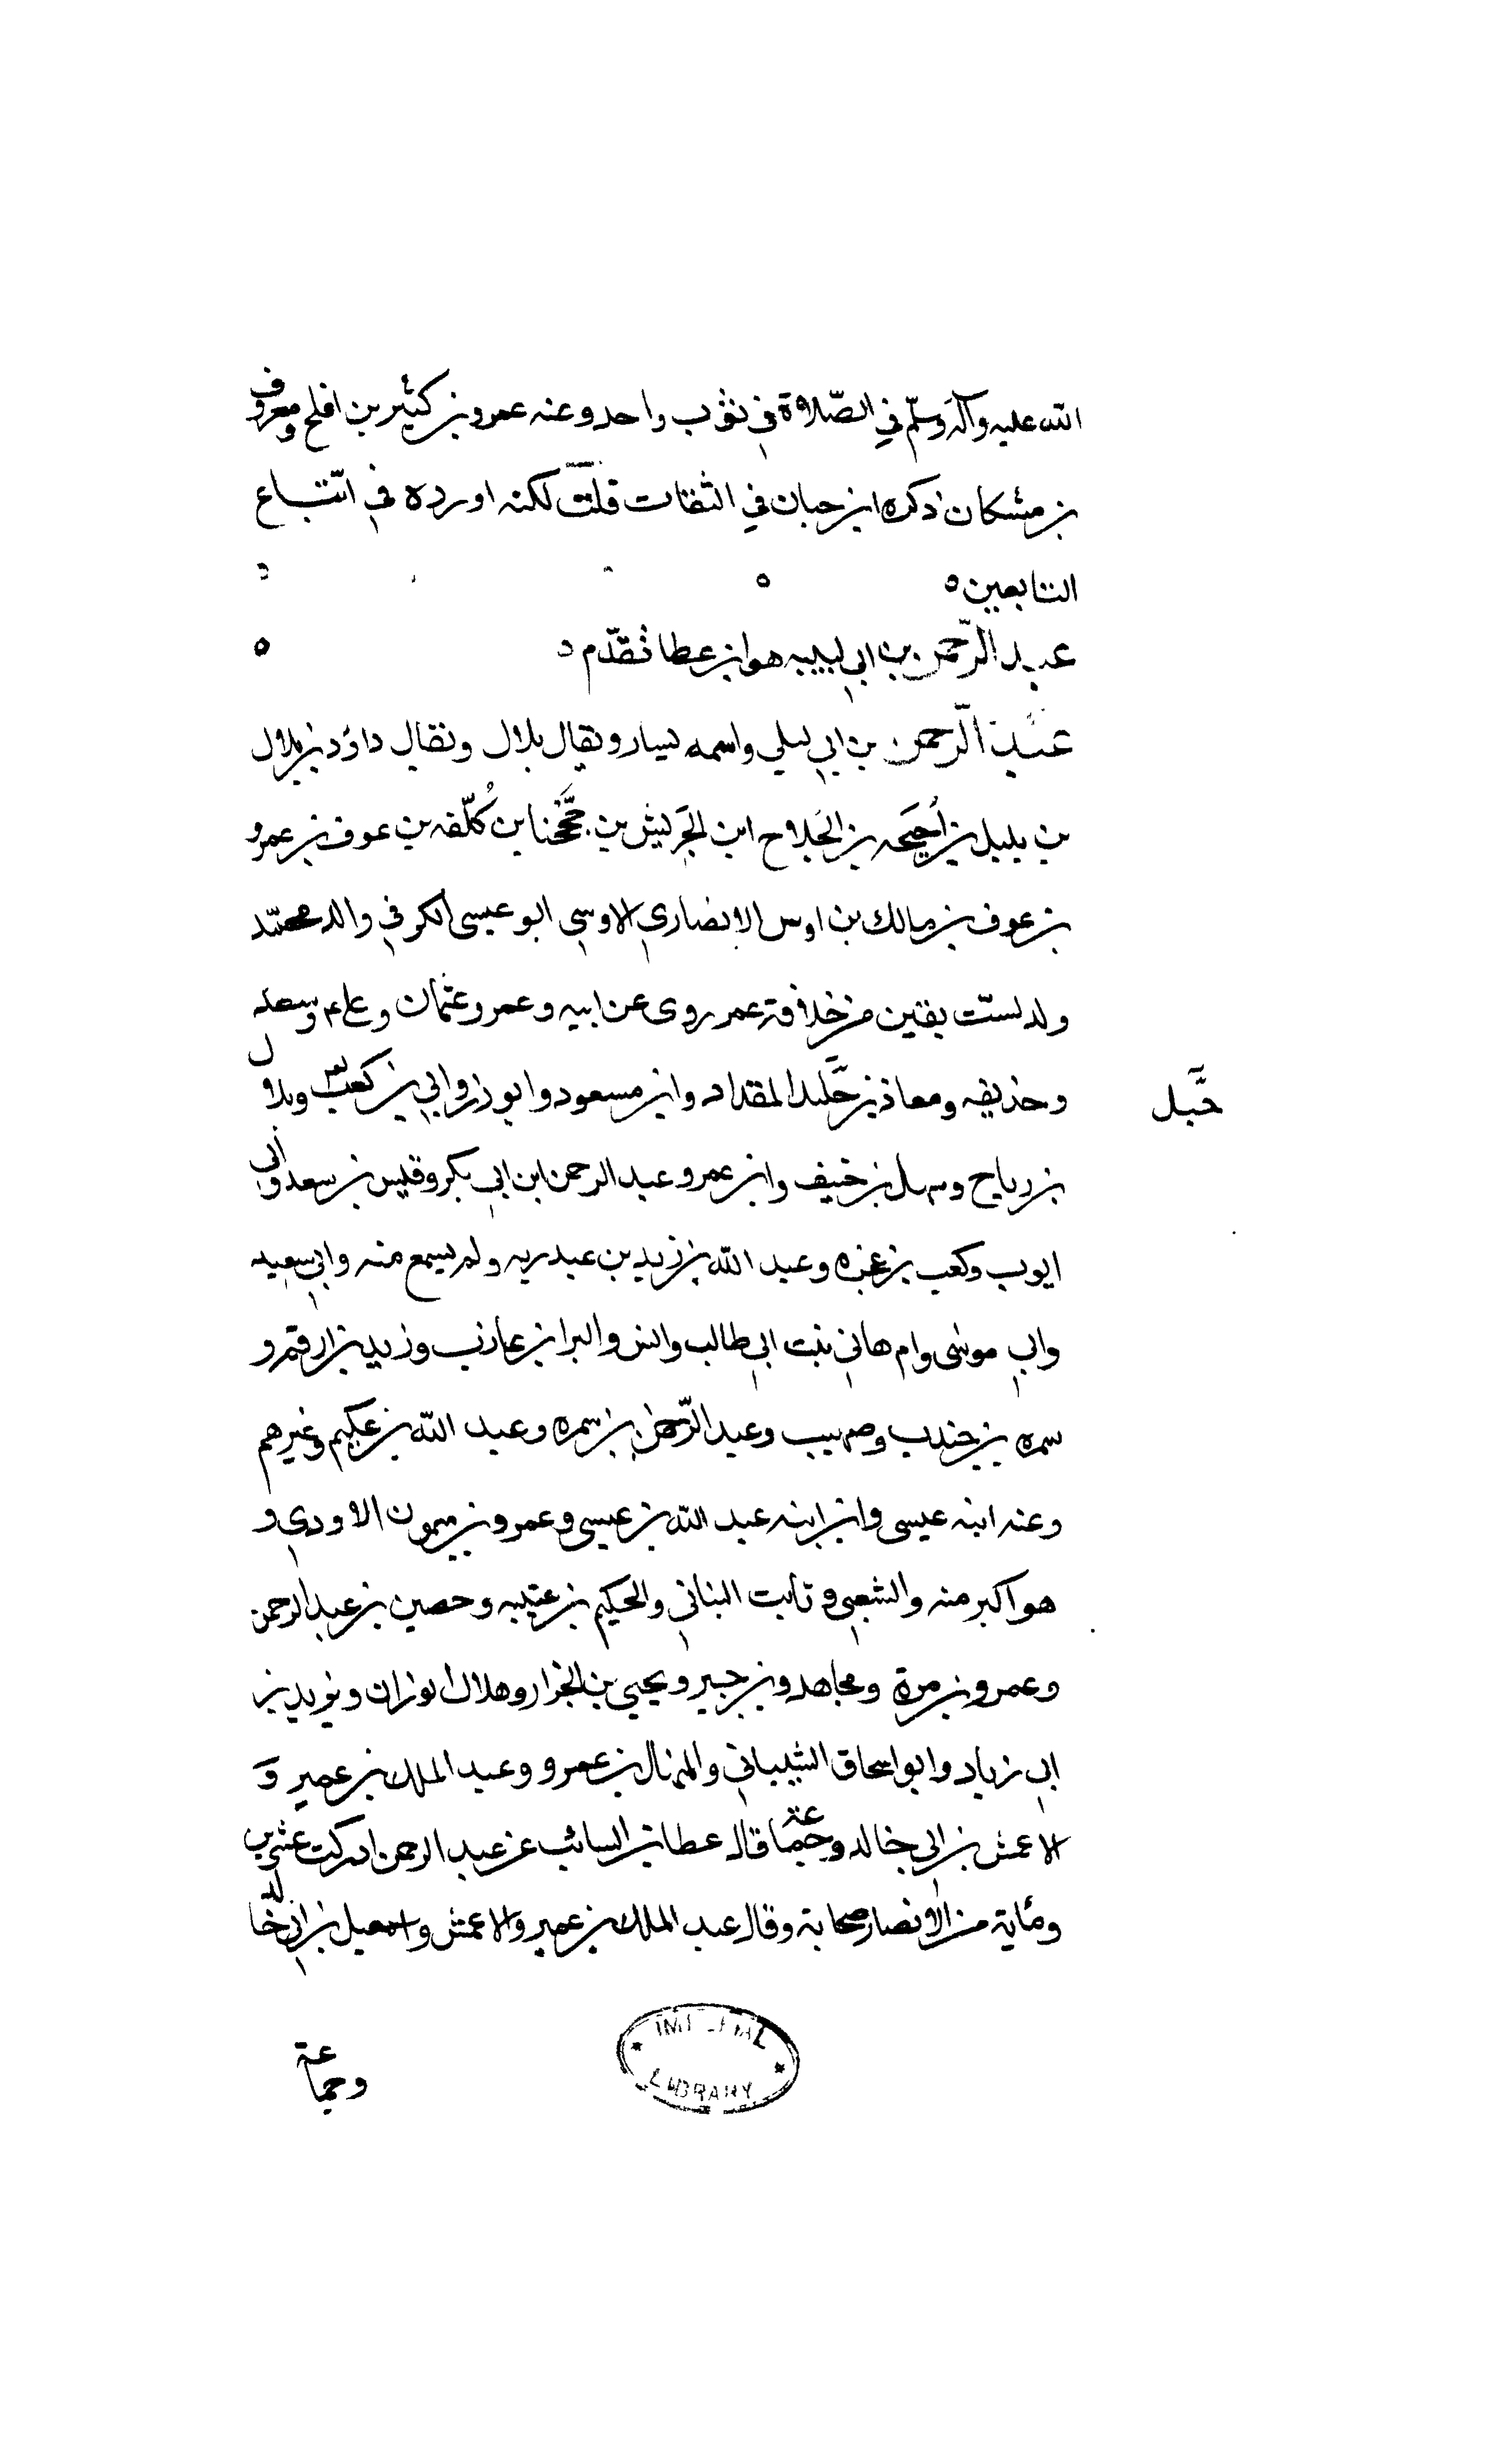 الله عليه وآله وسلم في الصّلاوة في ثوب واحد وعنه عمرو بن كثير بن افلح ومعروف
بن مشكان ذكره ابن حبان في الثقات قلت لكنه اورده في اتباع
التابعين ه
عبد الرّحمن بن ابي لبيبه هو ابن عطا تقدّم
عبد الرّحمن بن ابي ليلي واسمه يسار ويقال بلال ويقال داؤد بن بلال
بن بليل بن اُحيحه بن الجُلاح ابن الحَريش بن جحجبا بن كُلّفه بن عوف بن عمرو
بن عوف بن مالك بن اوس الانصاري الاوسي ابو عيسى الكوفي والد محمّد
ولد لستّ بقين من خلافة عمر روى عن ابيه وعمر وعثمان وعلي وسعد
وحذيفه ومعاذ بن جَبل المقداد وابن مسعود وابو ذر وابي بن كعب وبلال
جَبل
بن رباح وسهل بن حنيف وابن عمر وعبد الرحمن ابن ابي بكر وقيس بن سعد وابي
ايوب وكعب بن عجره وعبد الله بن زيد بن عبد ربه ولم يسمع منه وابي سعيد
وابي موسى وام هاني بنت ابي طالب وانس والبرا بن عازب وزيد بن ارقم و
سمره بن جندب وصهيب وعبد الرّحمن بن سمره وعبد الله بن عكيم وغيرهم
وعنه ابنه عيسى وابن ابنه عبد الله بن عيسى وعمرو بن ميمون الاودي و
هو اكبر منه والشعبي و ثابت البناني والحكيم بن عتيبه وحصين بن عبد الرحمن
وعمرو بن مرة ومجاهد وبن جبير ويحيي بن الجزار وهلال الوزان ويزيد بن
ابي زياد وابو اسحاق الشيباني والمنهال بن عمرو وعبد الملك بن عمير وَ
الاعمش بن ابي خالد وجماعة قال عطا بن السائب عن عبد الرحمن ادركت عشرين
ومائة من الانصار صحابة وقال عبد الملك بن عمير والاعمش واسمعيل بن ابي خالد
LIBRARY
وجماعة